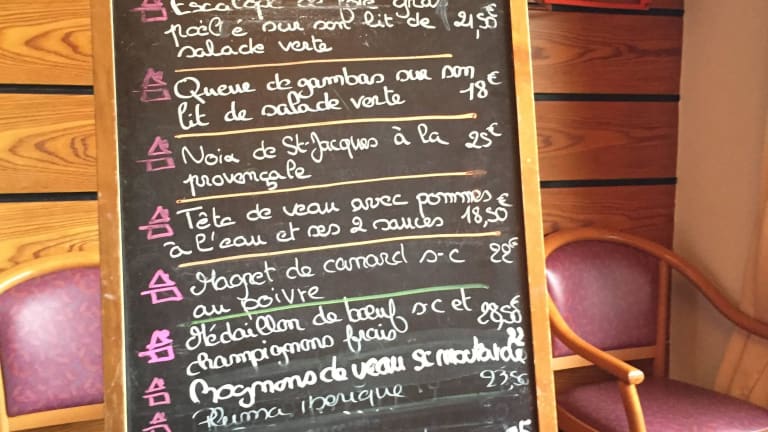 Escalope de foie gras
poêlé sur son lit de 21,50€
salade verte
Queue de gambas sur son
lit de salade verte 18€
Noix de St-Jacques à la 25€
provençale
Tête de veau avec pommes
à l'eau et ses 2 sauces 18,50€
Magret de canard s-c 22€
au poivre
Médaillon de bœuf s-c et 28,50€
champignons frais
Rognons de veau sc moutarde 22
Pluma iberique 23,50